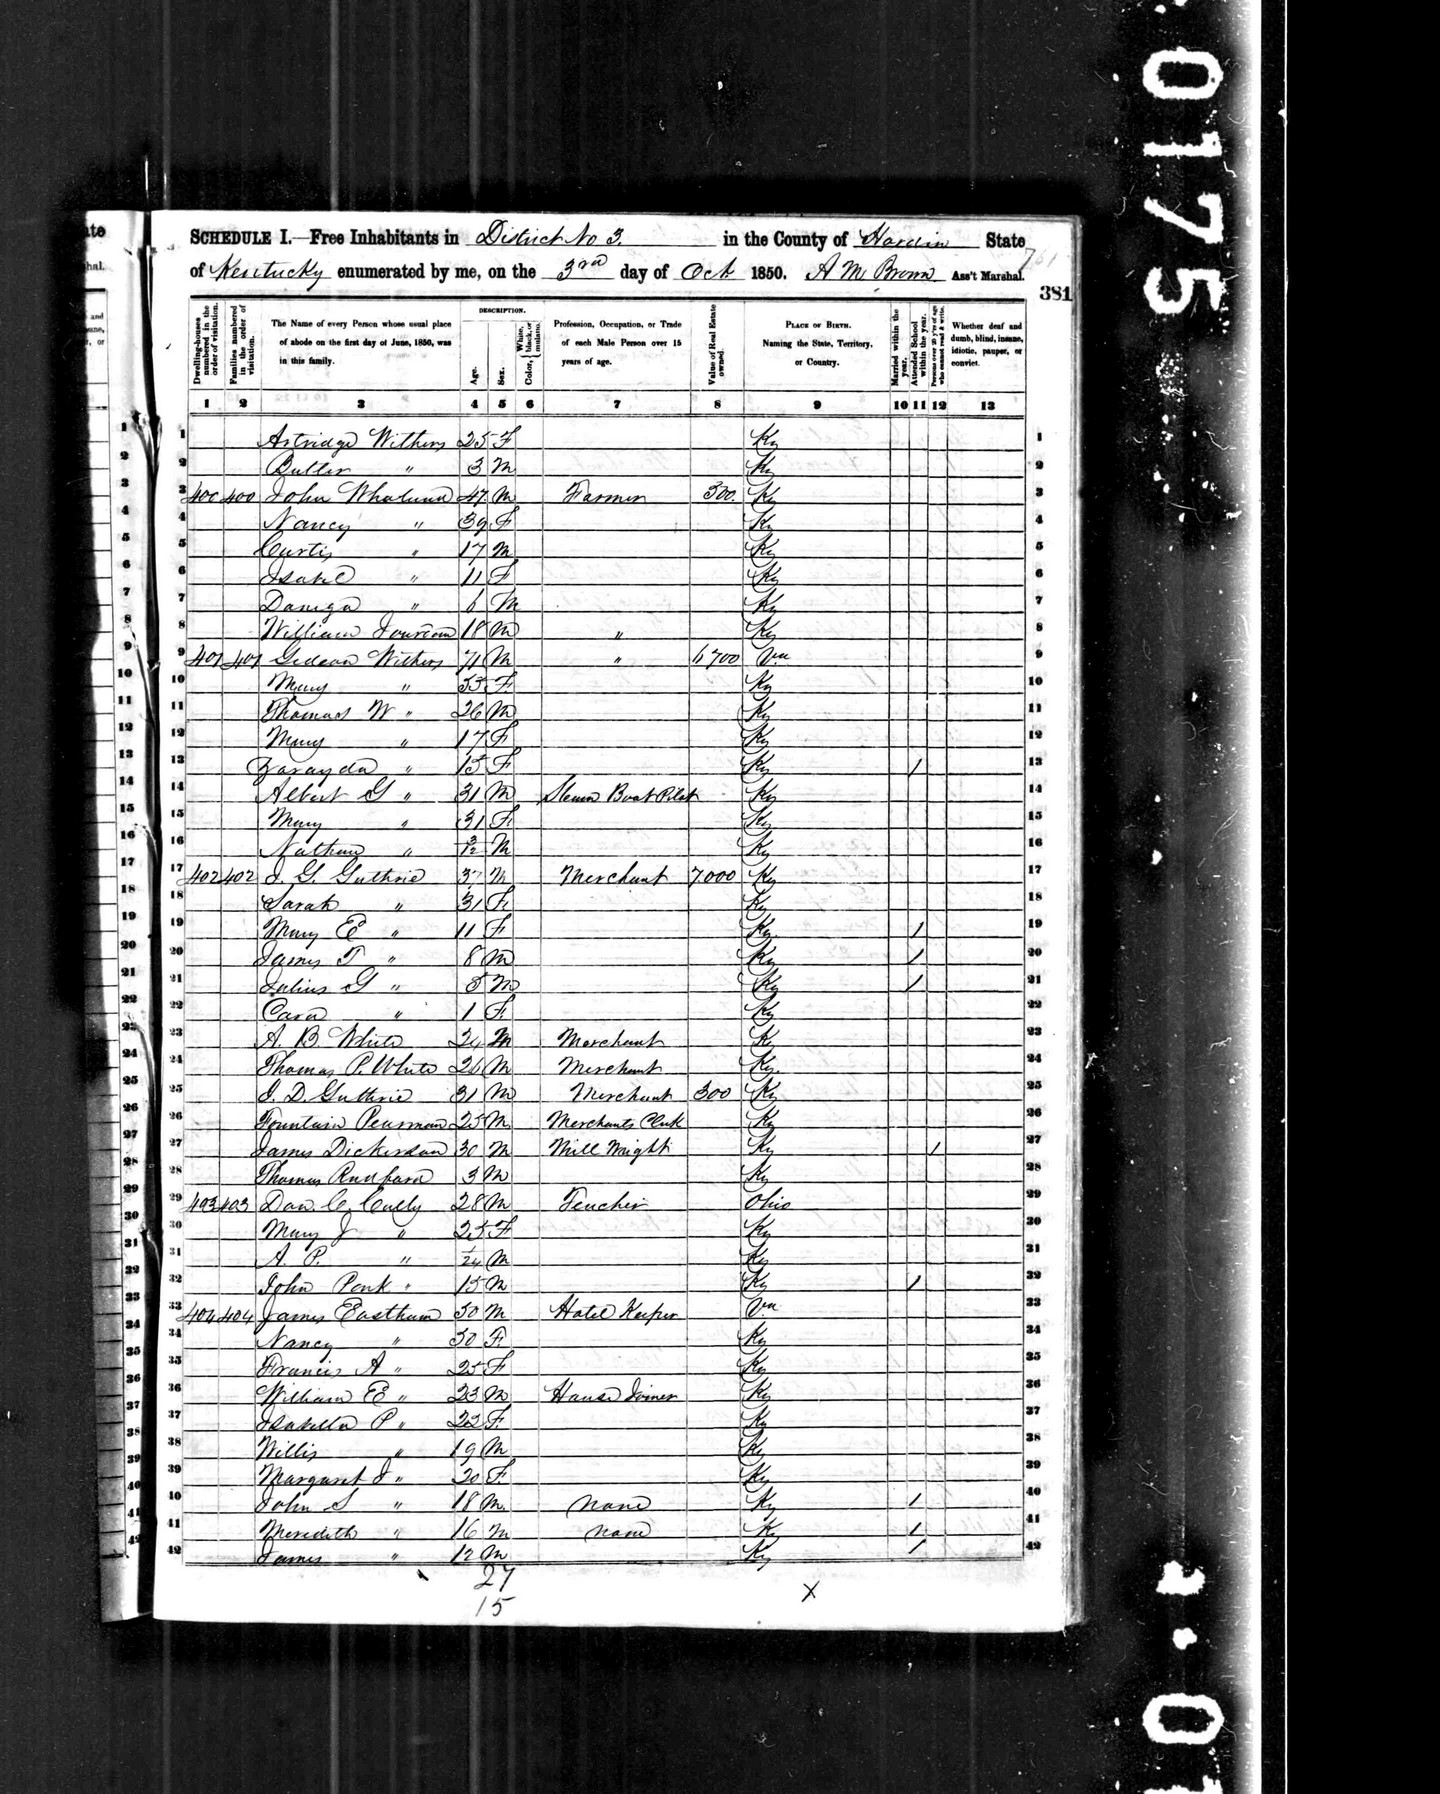 0175
SCHEDULE I.—Free Inhabitants in District No 3. in the County of Hardin State
of Kentucky enumerated by me, on the 3rd day of Oct 1850. A M Brown Ass't Marshal.
381
Dwelling-houses numbered in the order of visitation. Families numbered in the order of visitation. The Name of every Person whose usual place of abode on the first day of June, 1850, was in this family. DESCRIPTION. Age. Sex. Color, { White, black, or mulatto. Profession, Occupation, or Trade of each Male Person over 15 years of age. Value of Real Estate owned. PLACE OF BIRTH. Naming the State, Territory, or Country. Married within the year. Attended School within the year. Persons over 20 y'rs of age who cannot read & write. Whether deaf and dumb, blind, insane, idiotic, pauper, or convict.
1 2 3 4 5 6 7 8 9 10 11 12 13
1 Withers 25 F Ky 1
2 Butler " 3 M Ky 2
3 400 400 John 47 M Farmer 300. Ky 3
4 Nancy " 39 F Ky 4
5 Curtis " 17 M Ky 5
6 " 11 F Ky 6
7 " 6 M Ky 7
8 William 18 M " Ky 8
9 401 401 Gideon Withers 71 M " 6700 Va 9
10 Mary " 55 F Ky 10
11 Thomas W " 26 M Ky 11
12 Mary " 17 F Ky 12
13 Zarayda " 15 F Ky 1 13
14 Albert G " 31 M Steam Boat Pilot Ky 14
15 Mary " 31 F Ky 15
16 Nathan " 3/12 M Ky 16
17 402 402 J. G. Guthrie 37 M Merchant 7000 Ky 17
18 Sarah " 31 F Ky 18
19 Mary E " 11 F Ky 1 19
20 James T " 8 M Ky 1 20
21 Julius G " 5 M Ky 1 21
22 " 1 F Ky 22
23 A. B. White 24 M Merchant Ky 23
24 Thomas P. White 26 M Merchant Ky. 24
25 J. D. Guthrie 31 M Merchant 300 Ky 25
26 Fountain Pearman 25 M Merchants Clerk Ky 26
27 James Dickerson 30 M Mill Wright Ky 1 27
28 Thomas 3 M Ky 28
29 403 403 Dan. C. Cully 28 M Teacher Ohio 29
30 Mary J " 25 F Ky 30
31 A. P. " 1/24 M Ky 31
32 John Ponk " 15 M Ky 1 32
33 404 404 James Eastham 50 M Hotel Keeper Va 33
34 Nancy " 50 F Ky 34
35 Francis A " 25 F Ky 35
36 William E " 23 M House Joiner Ky 36
37 Isabella P " 22 F Ky 37
38 Willis " 19 M Ky 38
39 Margaret J " 20 F Ky 39
40 John S " 18 M none Ky 1 40
41 Meredith " 16 M none Ky 1 41
42 James " 12 M Ky 1 42
27
15
X